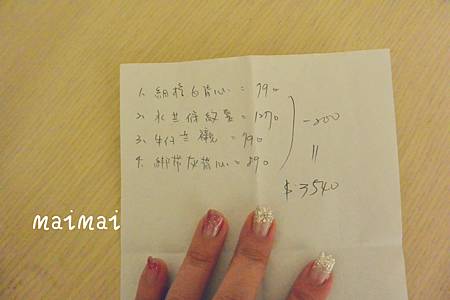 1. 白背心 = 790
2. 水兰條紋 = 1270
3. 牛仔兰襯 = 790
4. 綁帶灰背心 = 890
-200
=
$ 3540
maimai